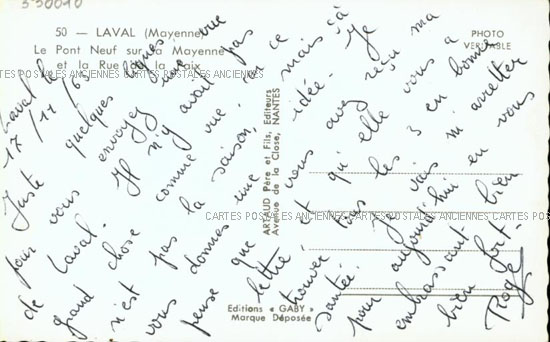 330090
50 — LAVAL (Mayenne)
Le Pont Neuf sur la Mayenne
et la Rue de la Paix
PHOTO
VERITABLE
CARTES POSTALES ANCIENNES CARTES POSTALES ANCIENNES CARTES POSTALES ANCIENNES
CARTES POSTALES ANCIENNES CARTES POSTALES ANCIENNES CARTES POS
ARTAUD Père et Fils, Editeurs
Avenue de la Close, NANTES
Editions « GABY »
Marque Déposée
Laval le
17/11/63
Juste quelques lignes
pour vous envoyer une vue
de Laval. Il n'y avait pas
grand chose comme vue, en ce
n'est pas la saison, mais çà
vous donnes une idée. Je
pense que vous avez reçu ma
lettre, et qu'elle vous a
trouver tous les 3 en bonne
santé. Je vais m'arretter
pour aujourd'hui en vous
embrassant bien
bien fort.
Roger